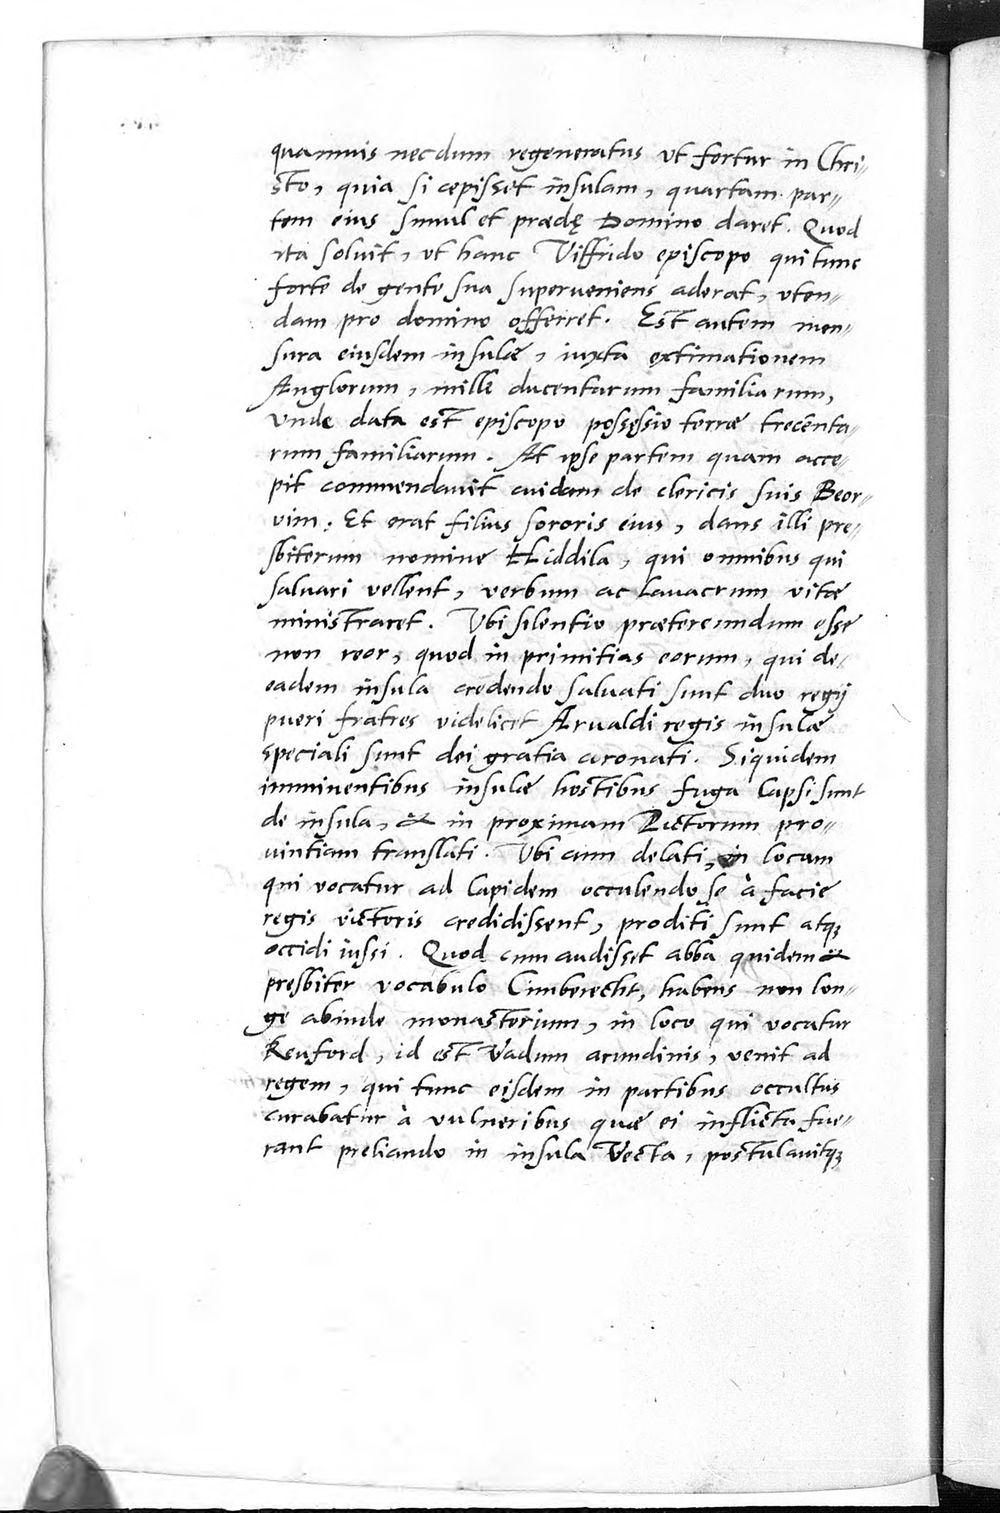 quamuis necdum regeneratus vt fertur in Chri-
sto, quia si cepisset insulam, quartam par-
tem eius simul et prædę Domino daret. Quod
ita soluit, vt hanc Viffrido episcopo qui tunc
forte de gente sua superueniens aderat, vten-
dam pro domino offerret. Est autem men-
sura eiusdem insulæ, iuxta extimationem
Anglorum, mille ducentarum familiarum,
Vnde data est episcopo possessio terræ trecenta-
rum familiarum. At ipse partem quam acce-
pit commendauit cuidam de clericis suis Beor-
vim. Et erat filius sororis eius, dans illi pre-
sbiterum nomine Hiddila, qui omnibus qui
saluari vellent, verbum ac lauacrum vitæ
ministraret. Vbi silentio prætereundum esse
non reor, quod in primitias eorum, qui de
eadem insula credendo saluati sunt duo regij
pueri fratres videlicet Arualdi regis insulæ
speciali sunt dei gratia coronati. Siquidem
imminentibus insulæ hostibus fuga lapsi sunt
de insula, & in proximam Victorum pro-
uintiam translati. Vbi cum delati, in locum
qui vocatur ad lapidem occulendo se à facie
regis victoris credidissent, proditi sunt atq;
occidi iussi. Quod cum audisset abba quidem &
presbiter vocabulo Cimberecht, habens non lon-
ge abinde monasterium, in loco qui vocatur
Reuford, id est Vadum arundinis, venit ad
regem, qui tunc eisdem in partibus occultus
curabatur à vulneribus quæ ei inflicta fue-
rant preliando in insula Vecta, postulauitq;